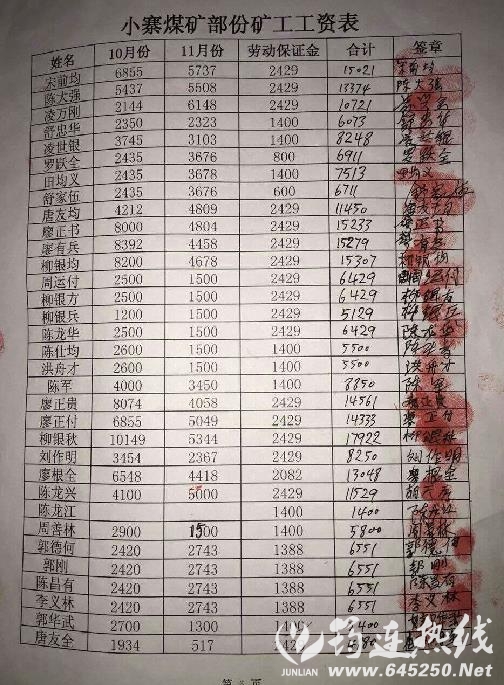 小寨煤矿部份矿工工资表
姓名 10月份 11月份 劳动保证金 合计 签章
宋前均 6855 5737 2429 15021 宋前均
陈大强 5437 5508 2429 13374 陈大强
凌万刚 2144 6148 2429 10721
舒忠华 2350 2323 1400 6073
凌世银 3745 3103 1400 8248
罗跃全 2435 3676 800 6911 罗跃全
田均义 2435 3678 1400 7513 田均义
舒家伍 2435 3676 600 6711
唐友均 4212 4809 2429 11450 唐友均
廖正书 8000 4804 2429 15233 廖正书
廖有兵 8392 4458 2429 15279
柳银均 8200 4678 2429 15307 柳银均
周运付 2500 1500 2429 6429 周运付
柳银方 2500 1500 2429 6429 柳银方
柳银兵 1200 1500 2429 5129 柳银兵
陈龙华 2500 1500 2429 6429 陈龙华
陈仕均 2600 1500 1400 5500
洪舟才 2600 1500 1400 5500 洪舟才
陈军 4000 3450 1400 8850 陈军
廖正贵 8074 4058 2429 14561
廖正付 6855 5049 2429 14333 廖正付
柳银秋 10149 5344 2429 17922 柳银秋
刘作明 3454 2367 2429 8250 刘作明
廖根全 6548 4418 2082 13048 廖根全
陈龙兴 4100 5000 2429 11529
陈龙江 1400 1400
周善林 2900 1500 1400 5800 周善林
郭德何 2420 2743 1388 6551 郭德何
郭刚 2420 2743 1388 6551 郭刚
陈昌有 2420 2743 1388 6551 陈昌有
李义林 2420 2743 1388 6551 李义林
郭华武 2700 1300 1400
唐友全 1934 517 2429
筠连热线
JUNLIAN www.645250.Net